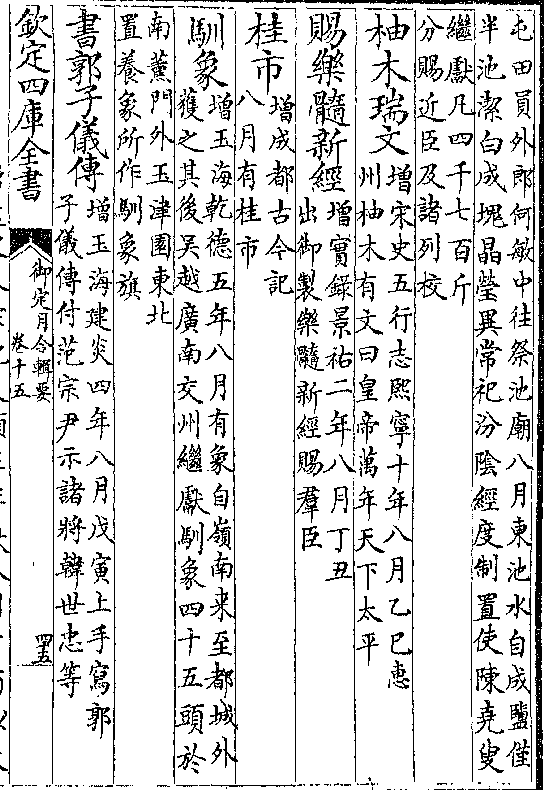 屯田員外郎何敏中往祭池廟八月東池水自成鹽僅
半池潔白成塊晶瑩異常祀汾陰經度制置使陳堯叟
繼獻凡四千七百斤
分賜近臣及諸列校
柚木瑞文
增宋史五行志熙寧十年八月乙巳惠
州柚木有文曰皇帝萬年天下太平
賜樂髓新經
增實錄景祐二年八月丁丑
出御製樂髓新經賜羣臣
桂市
增成都古今記
八月有桂市
馴象
增玉海乾德五年八月有象自嶺南来至都城外
獲之其後吴越廣南交州繼獻馴象四十五頭於
南薰門外玉津園東北
置養象所作馴象旗
書郭子儀傳
增玉海建炎四年八月戊寅上手寫郭
子儀傳付范宗尹示諸將韓世忠等
欽定四庫全書
御定月令輯要
卷十五
四五